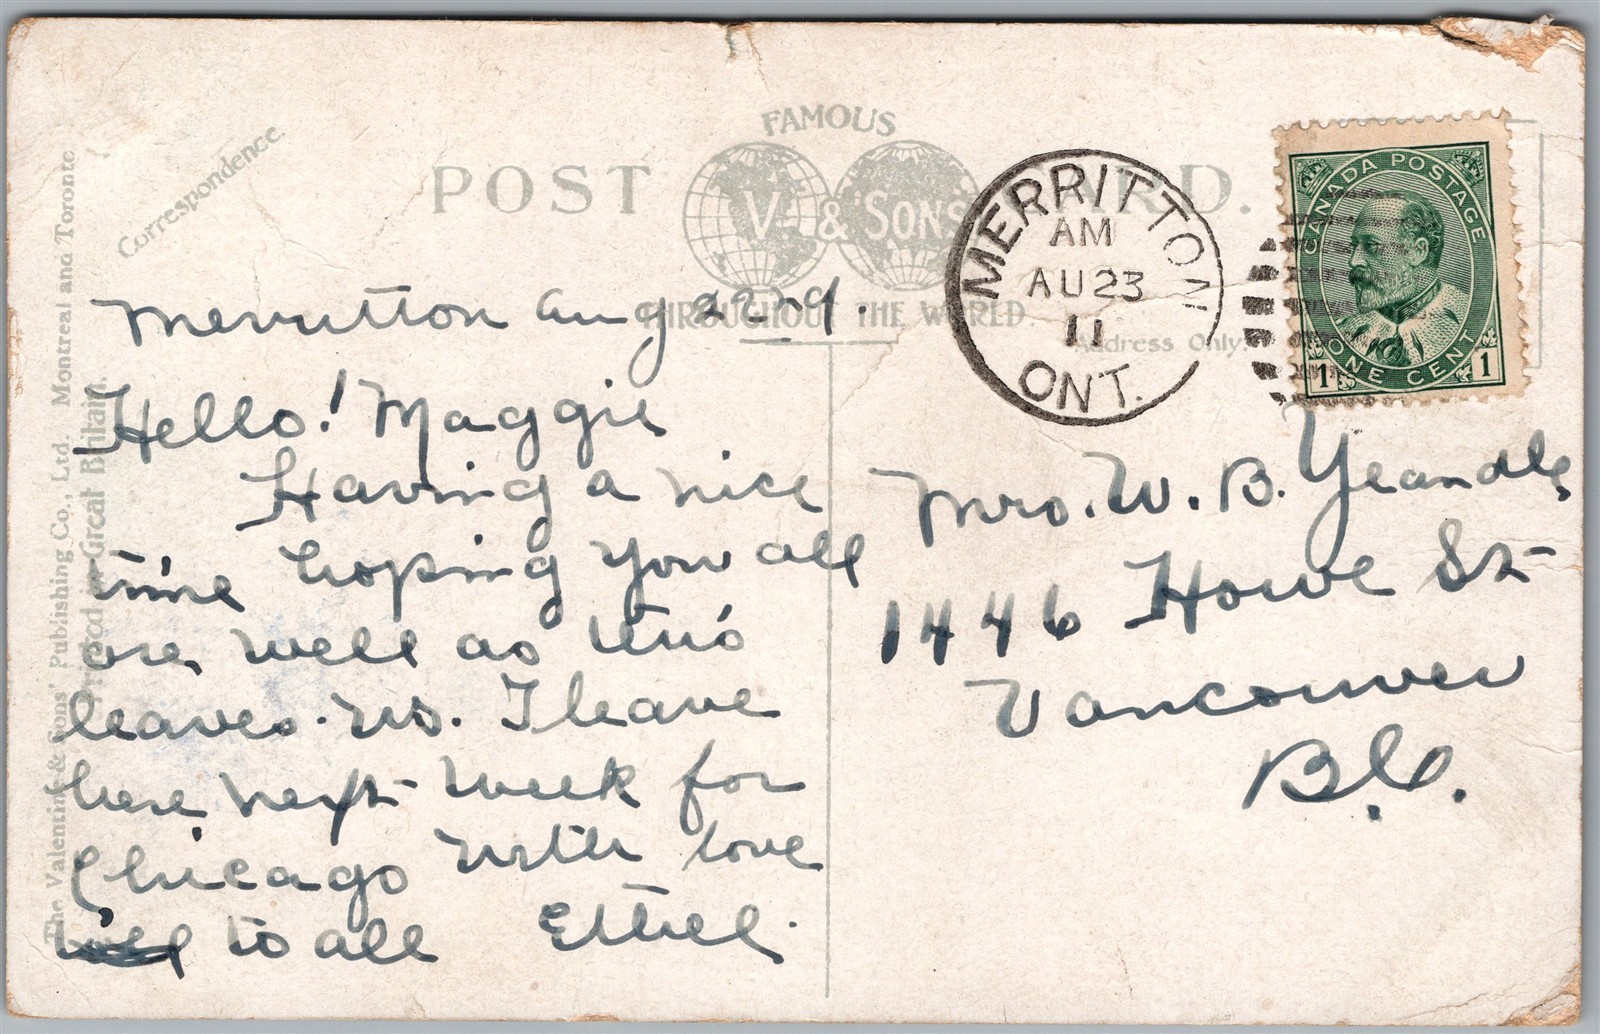 FAMOUS
POST CARD.
V. & SONS
THROUGHOUT THE WORLD.
Correspondence.
Address Only.
The Valentine & Sons' Publishing Co., Ltd. Montreal and Toronto
Printed in Great Britain.
MERRITTON
AM
AU 23
11
ONT.
CANADA POSTAGE
ONE CENT
1 1
Merritton Aug 22nd.
Hello! Maggie
Having a nice
time hoping you all
are well as this
leaves us. I leave
here next week for
Chicago with love
to all Ethel.
Mrs. W. B. Yeandle,
1446 Howe St
Vancouver
B.C.